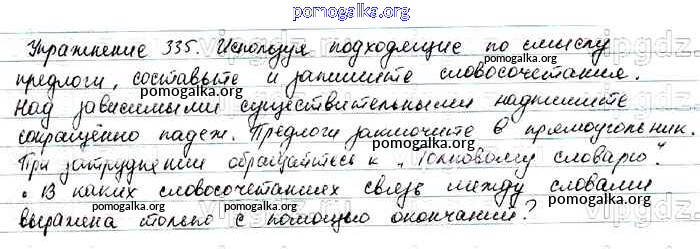 pomogalka.org
Упражнение 335. Используя подходящие по смыслу
предлоги, составьте и запишите словосочетания.
Над зависимыми существительными надпишите
сокращённо падеж. Предлоги заключите в прямоугольник.
При затруднении обращайтесь к „Толковому словарю".
• В каких словосочетаниях связь между словами
выражена только с помощью окончаний?